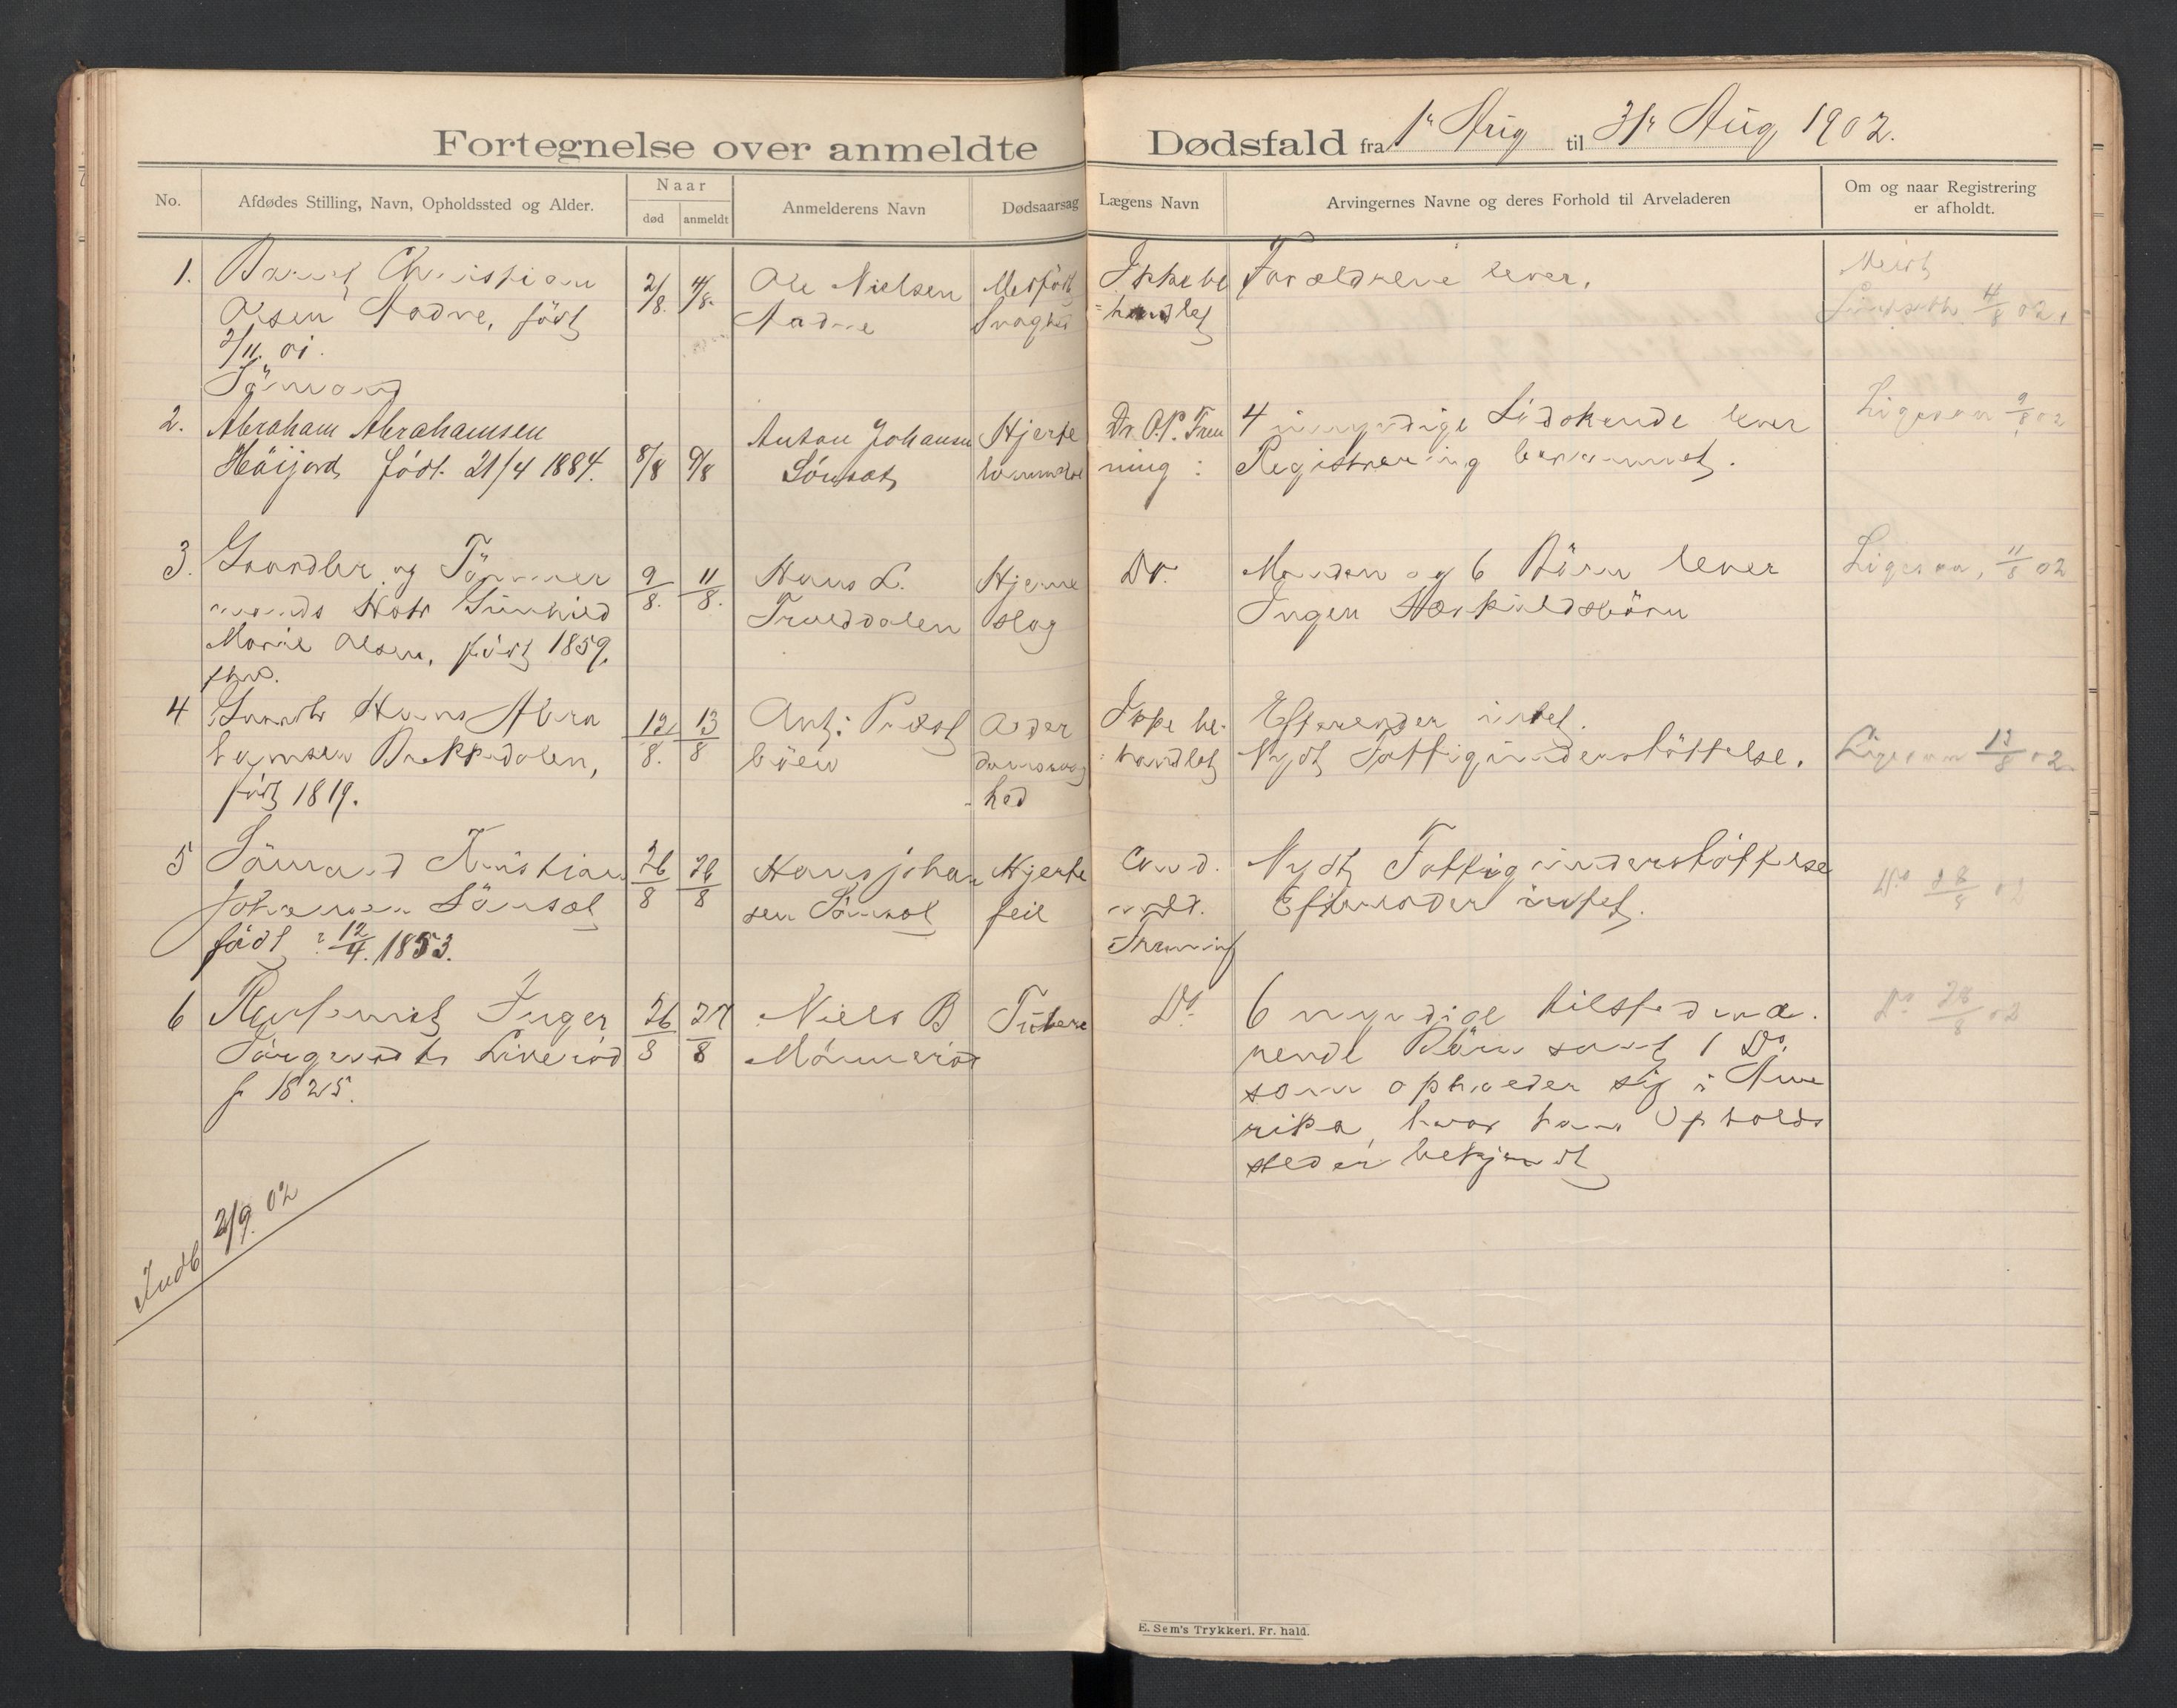 Fortegnelse over anmeldte Dødsfald fra 1r Aug til 31r Aug 1902.
No.
Afdødes Stilling, Navn, Opholdssted og Alder.
Naar
død
anmeldt
Anmelderens Navn
Dødsaarsag
Lægens Navn
Arvingernes Navne og deres Forhold til Arveladeren
Om og naar Registrering
er afholdt.
1.
Barnet Christian
Olsen Aadne, født
2/11. 01.
2/8.
4/8.
Ole Nielsen
Aadne
Medfødt
Svaghed
Ikke be
=handlet
Forældrene lever.
4/8 02.
2.
Sømand
Abraham Abrahamsen
Høijord født. 21/4 1884.
8/8
9/8
Anton Johansen
Sønset
Hjerte
Dr. O.P. Trem
ning :
4 umyndige Sødskende lever
Registrering berammet.
Ligesaa 9/8 02
3.
Gaardbr. og Tømmer
mands Hstr Gunhild
Marie Olsen, født 1859.
9/8.
11/8.
Hans L.
Trolddalen
Hjerne
slag
Do.
Manden og 6 Børn lever
Ingen Særkuldsbørn
Ligesaa, 11/8 02
4
fhv.
Gaardbr Hans Abra
hamsen Bakkedalen,
født 1819.
12/8.
13/8
Ant: Præst
bøen
Alder
domssvag
hed
Ikke be-
=handlet
Efterlader intet.
Nydt Fattigunderstøttelse.
Ligesaa 13/8 02.
5
Sømand Kristian
Johansen Sønset
født ? 12/4. 1853.
26/8
26/8
Hans Johan
sen Sønset
Hjerte
feil
Cand.
med.
Tremning
Nydt Fattigunderstøttelse
Efterlader intet.
Do 28/8 02
6
Inger
Jørgensdtr Liverød
f. 1825.
26/8
27/8
Niels B
Mønnerød
Do
6 myndige tilstedevæ-
rende Børn samt 1 Do.
som opholder sig i Ame
rika, hvor hans Opholds
sted er bekjendt
Do 28/8 02
Indb 2/9. 02
E. Sem's Trykkeri. Fr.hald.